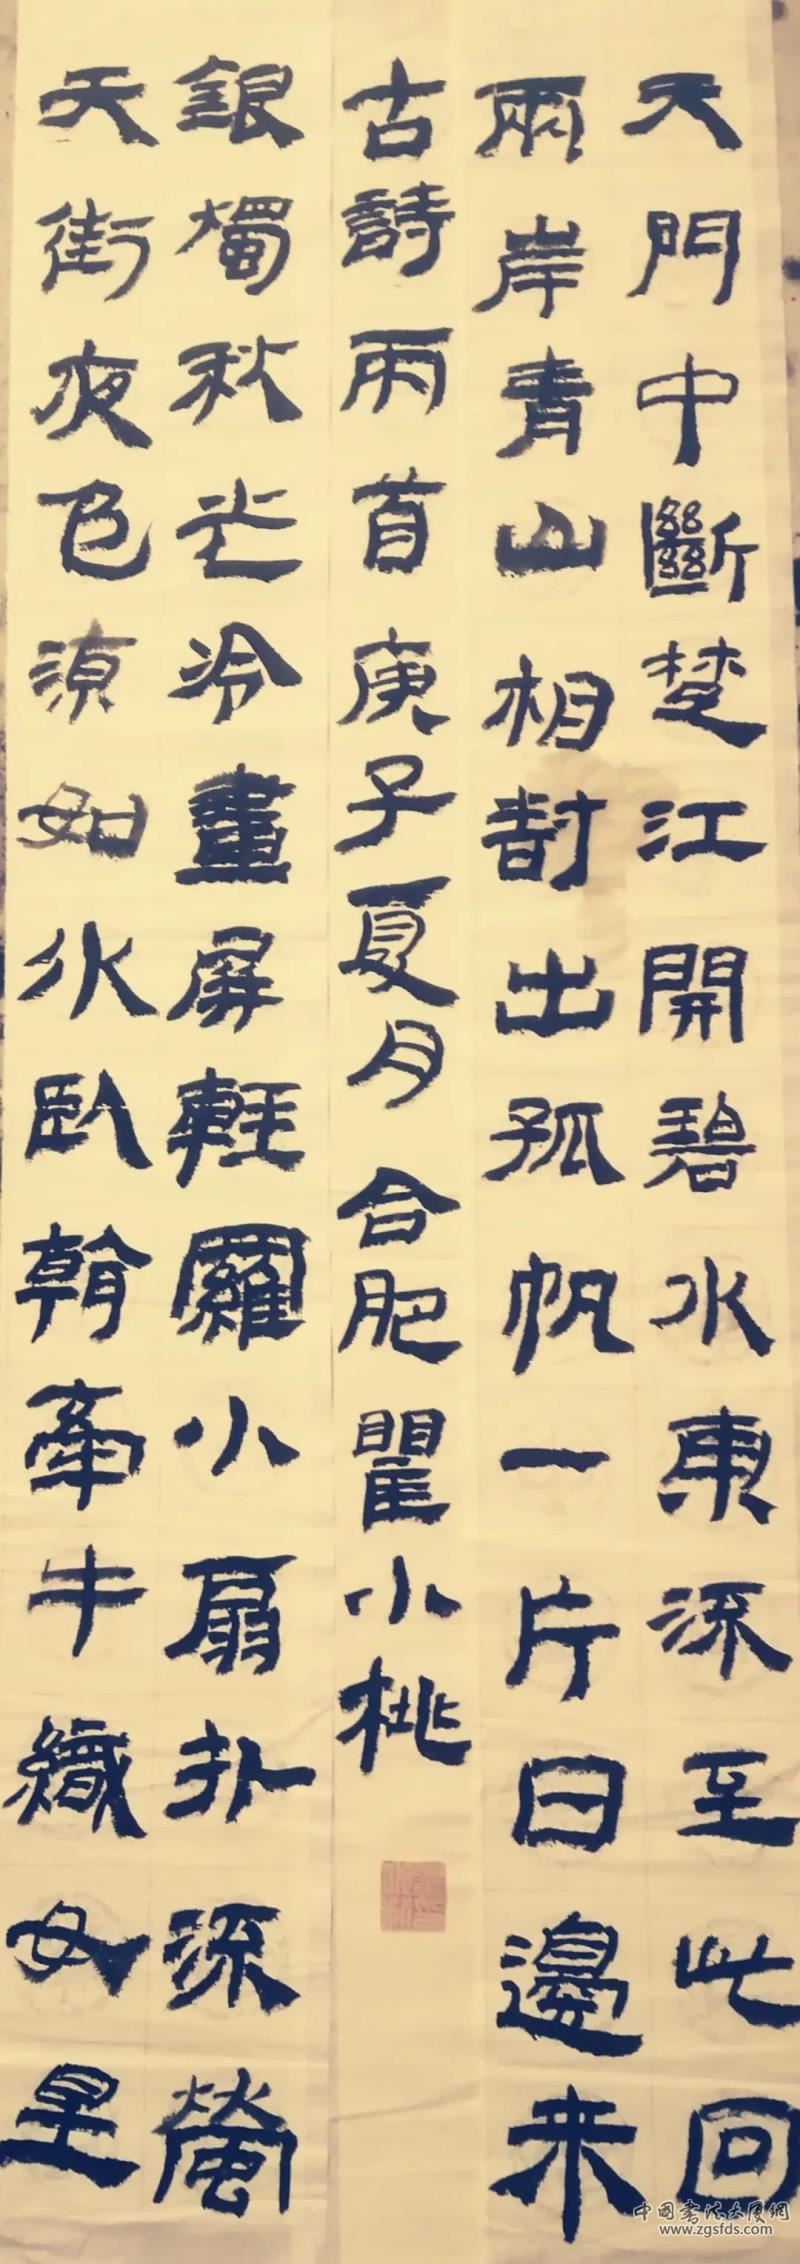 天門中斷楚江開碧水東流至此回
兩岸青山相對出孤帆一片日邊来
古詩兩首庚子夏月合肥瞿小桃
銀燭秋光冷畫屏輕羅小扇扑流螢
天街夜色凉如水臥看牽牛織女星
中國書法大廈網
www.zgsfds.com